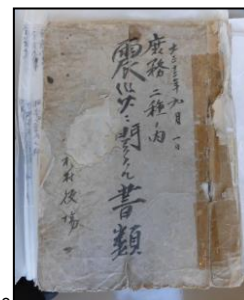 大正十二年九月一日
庶務二種ノ内
震災ニ関スル書類
村役場